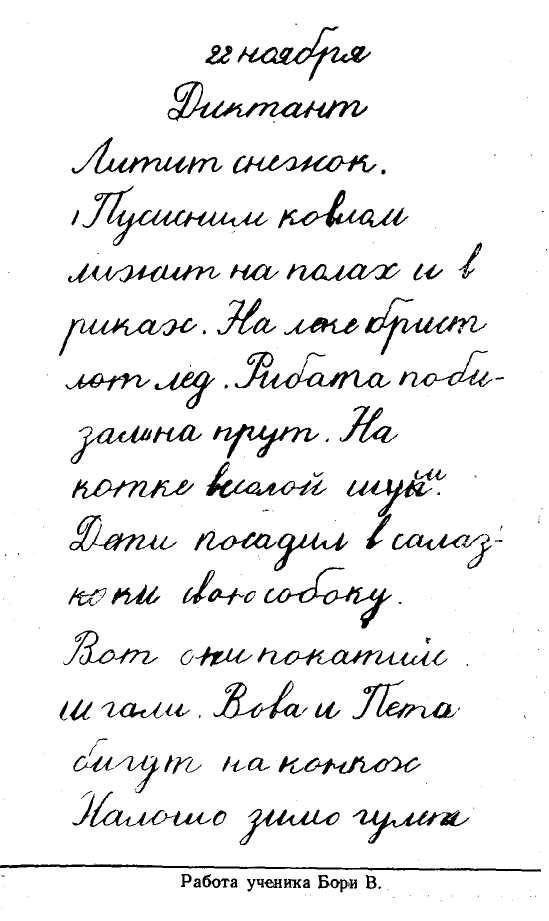 22 ноября
Диктант
Литит снежок.
Пусисним ковлом
лижит на полах и в
риках. На леке брист
лот лед. Рибата поби-
зали на прут. На
котке виолой шуми.
Дети посадил в салаз-
коки свою собоку.
Вот они покатили
ш гали. Вова и Пета
бигут на конкох
Халошо зимо гулета
Работа ученика Бори В.